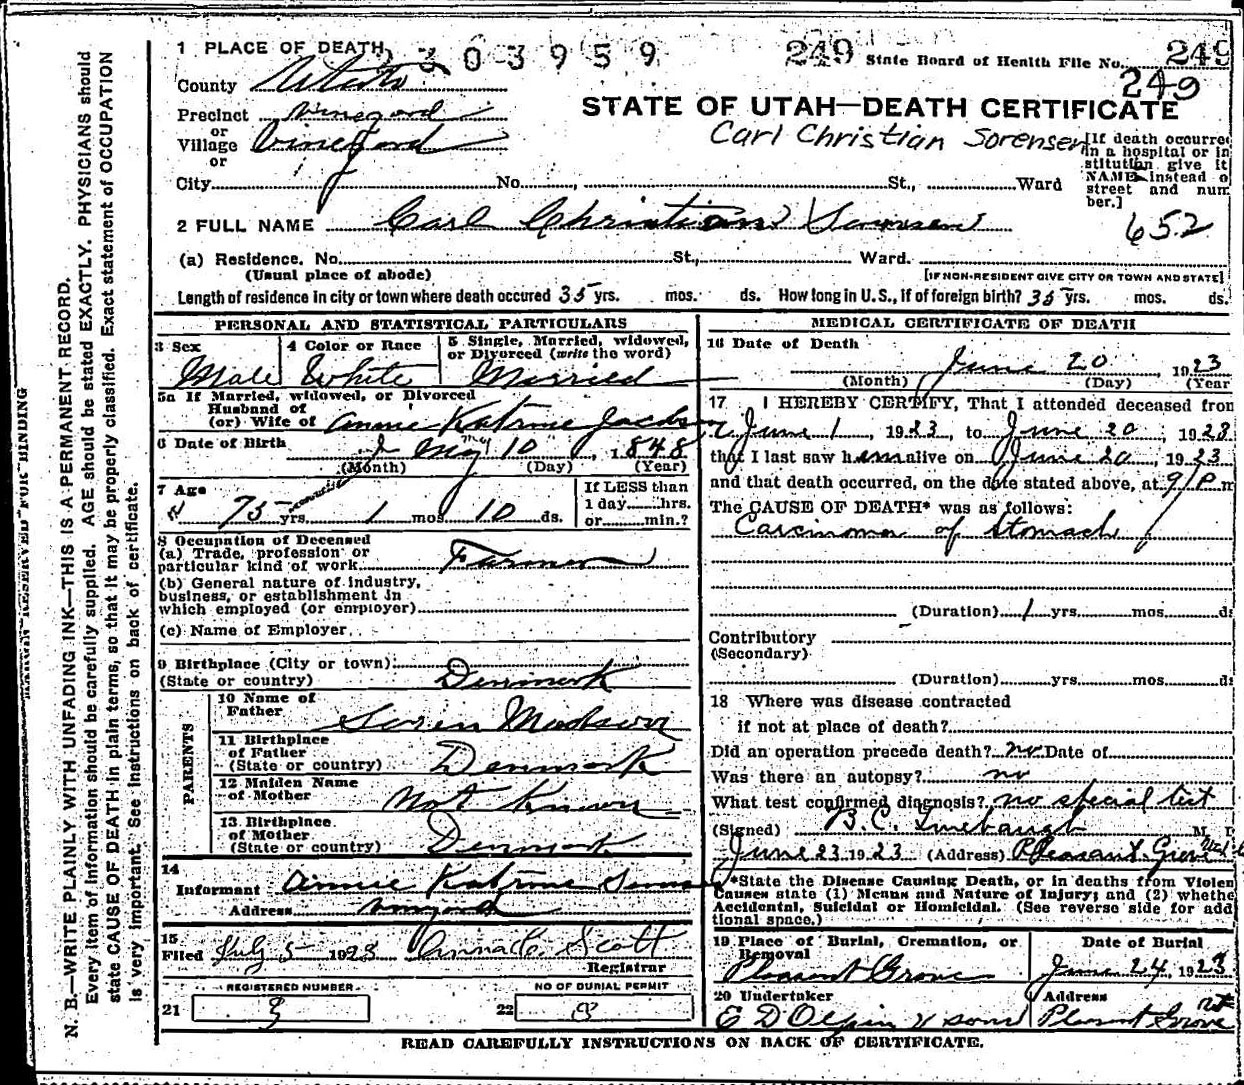 1 PLACE OF DEATH 2303959 249 State Board of Health File No. 249
County Utah 249
STATE OF UTAH—DEATH CERTIFICATE
Precinct Vineyard
or
Village Vineyard
or
Carl Christian Sorensen
[If death occurre
in a hospital or in
stitution give it
NAME instead o
street and num
ber.]
City No. , St., Ward
2 FULL NAME Carl Christian Sorensen 652
(a) Residence. No. St., Ward.
(Usual place of abode) [IF NON-RESIDENT GIVE CITY OR TOWN AND STATE]
Length of residence in city or town where death occured 35 yrs. mos. ds. How long in U.S., if of foreign birth? 35 yrs. mos. ds.
PERSONAL AND STATISTICAL PARTICULARS
3 Sex Male
4 Color or Race White
5 Single, Married, widowed, or Divorced (write the word) Married
5a If Married, widowed, or Divorced
Husband of
(or) Wife of Annie Katrine
6 Date of Birth May 10, 1848
(Month) (Day) (Year)
7 Age 75 yrs. 1 mos. 10 ds.
If LESS than
1 day hrs.
or min.?
8 Occupation of Deceased
(a) Trade, profession or
particular kind of work Farmer
(b) General nature of industry,
business, or establishment in
which employed (or employer)
(c) Name of Employer
9 Birthplace (City or town)
(State or country) Denmark
PARENTS
10 Name of
Father Soren Madsen
11 Birthplace
of Father
(State or country) Denmark
12 Maiden Name
of Mother Not Known
13 Birthplace
of Mother
(State or country) Denmark
14
Informant Annie Katrine
Address Vineyard
15
Filed July 5 1923 Anna C. Scott
Registrar
REGISTERED NUMBER
21
NO OF BURIAL PERMIT
22 8
MEDICAL CERTIFICATE OF DEATH
16 Date of Death
June 20, 1923
(Month) (Day) (Year
17 I HEREBY CERTIFY, That I attended deceased fron
June 1, 1923, to June 20, 1923
that I last saw him alive on June 20, 1923
and that death occurred, on the date stated above, at 9 P m
The CAUSE OF DEATH* was as follows:
Carcinoma of Stomach
(Duration) 1 yrs. mos. ds
Contributory
(Secondary)
(Duration) yrs. mos. ds
18 Where was disease contracted
if not at place of death?
Did an operation precede death? no Date of
Was there an autopsy? no
What test confirmed diagnosis? no special test
(Signed) B. C. Linebaugh M. D
June 23 1923 (Address) Pleasant Grove Utah
*State the Disease Causing Death, or in deaths from Violen
Causes state (1) Means and Nature of Injury; and (2) whethe
Accidental, Suicidal or Homicidal. (See reverse side for add
tional space.)
19 Place of Burial, Cremation, or
Removal
Pleasant Grove
Date of Burial
June 24, 1923
20 Undertaker
E D Olpin & Sons
Address
Pleasant Grove Ut
READ CAREFULLY INSTRUCTIONS ON BACK OF CERTIFICATE.
MARGIN RESERVED FOR BINDING
N. B.—WRITE PLAINLY WITH UNFADING INK—THIS IS A PERMANENT RECORD.
Every item of information should be carefully supplied. AGE should be stated EXACTLY. PHYSICIANS should
state CAUSE OF DEATH in plain terms, so that it may be properly classified. Exact statement of OCCUPATION
is very important. See instructions on back of certificate.